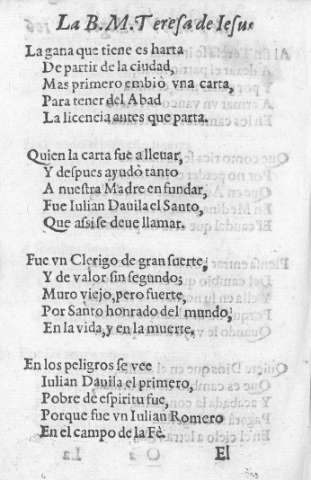 La B. M. Teresa de Iesus
La gana que tiene es harta
De partir de la ciudad,
Mas primero embiò vna carta,
Para tener del Abad
La licencia antes que parta.
Quien la carta fue a lleuar,
Y despues ayudò tanto
A nuestra Madre en fundar,
Fue Iulian Dauila el Santo,
Que assi se deue llamar.
Fue vn Clerigo de gran suerte,
Y de valor sin segundo;
Muro viejo, pero fuerte,
Por Santo honrado del mundo,
En la vida, y en la muerte.
En los peligros se vee
Iulian Dauila el primero,
Pobre de espiritu fue,
Porque fue vn Iulian Romero
En el campo de la Fè.
El